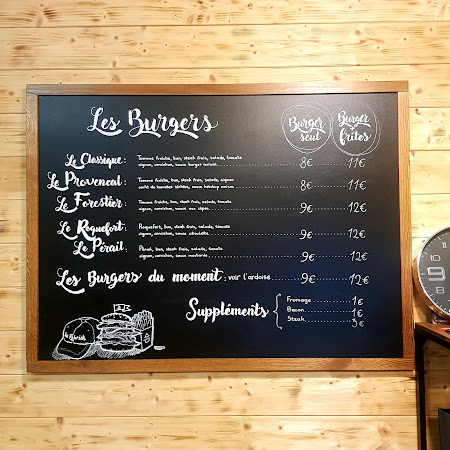 Les Burgers
Burger seul
Burger frites
Le Classique: Tomme fraîche, bun, steak frais, salade, tomate
oignon, cornichon, sauce burger maison 8€ 11€
Le Provencal: Tomme fraîche, bun, steak frais, salade, oignon
confit de tomates séchées, sauce ketchup maison 8€ 11€
Le Forestier: Tomme fraîche, bun, steak frais, salade, tomate
oignon, cornichon, sauce aux cèpes 9€ 12€
Le Roquefort: Roquefort, bun, steak frais, salade, tomate
oignon, cornichon, sauce ciboulette 9€ 12€
Le Pérail: Pérail, bun, steak frais, salade, tomate
oignon, cornichon, sauce moutarde 9€ 12€
Les Burgers du moment: voir l'ardoise 9€ 12€
Suppléments
Fromage 1€
Bacon 1€
Steak 3€
9